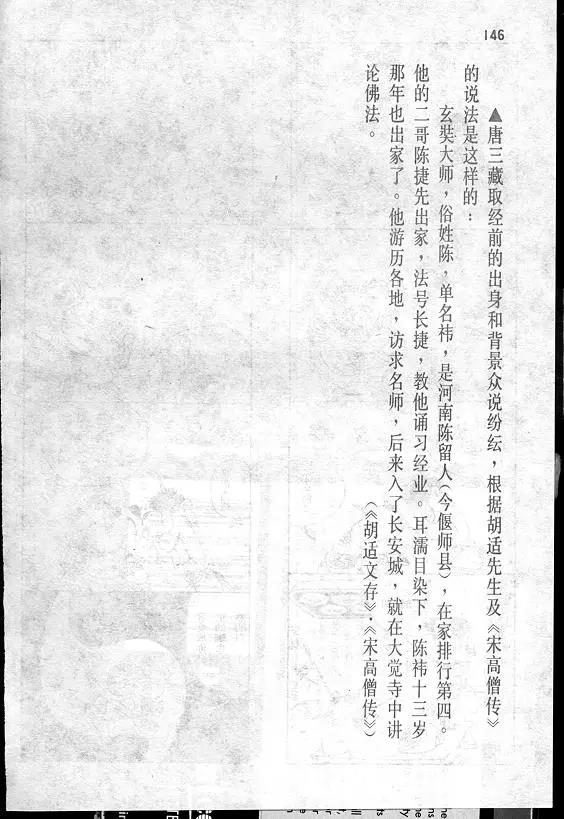 146
▲唐三藏取经前的出身和背景众说纷纭，根据胡适先生及《宋高僧传》
的说法是这样的：
玄奘大师，俗姓陈，单名祎，是河南陈留人(今偃师县)，在家排行第四。
他的二哥陈捷先出家，法号长捷，教他诵习经业。耳濡目染下，陈祎十三岁
那年也出家了。他游历各地，访求名师，后来入了长安城，就在大觉寺中讲
论佛法。
(《胡适文存》·《宋高僧传》)